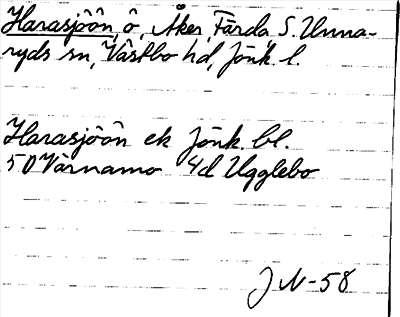 Harasjöön, ö, Åker, Färda, S. Unna-
ryds sn, Västbo hd, Jönk. l.
Harasjöön ek Jönk. bl.
50 Värnamo 4d Ugglebo
J N-58